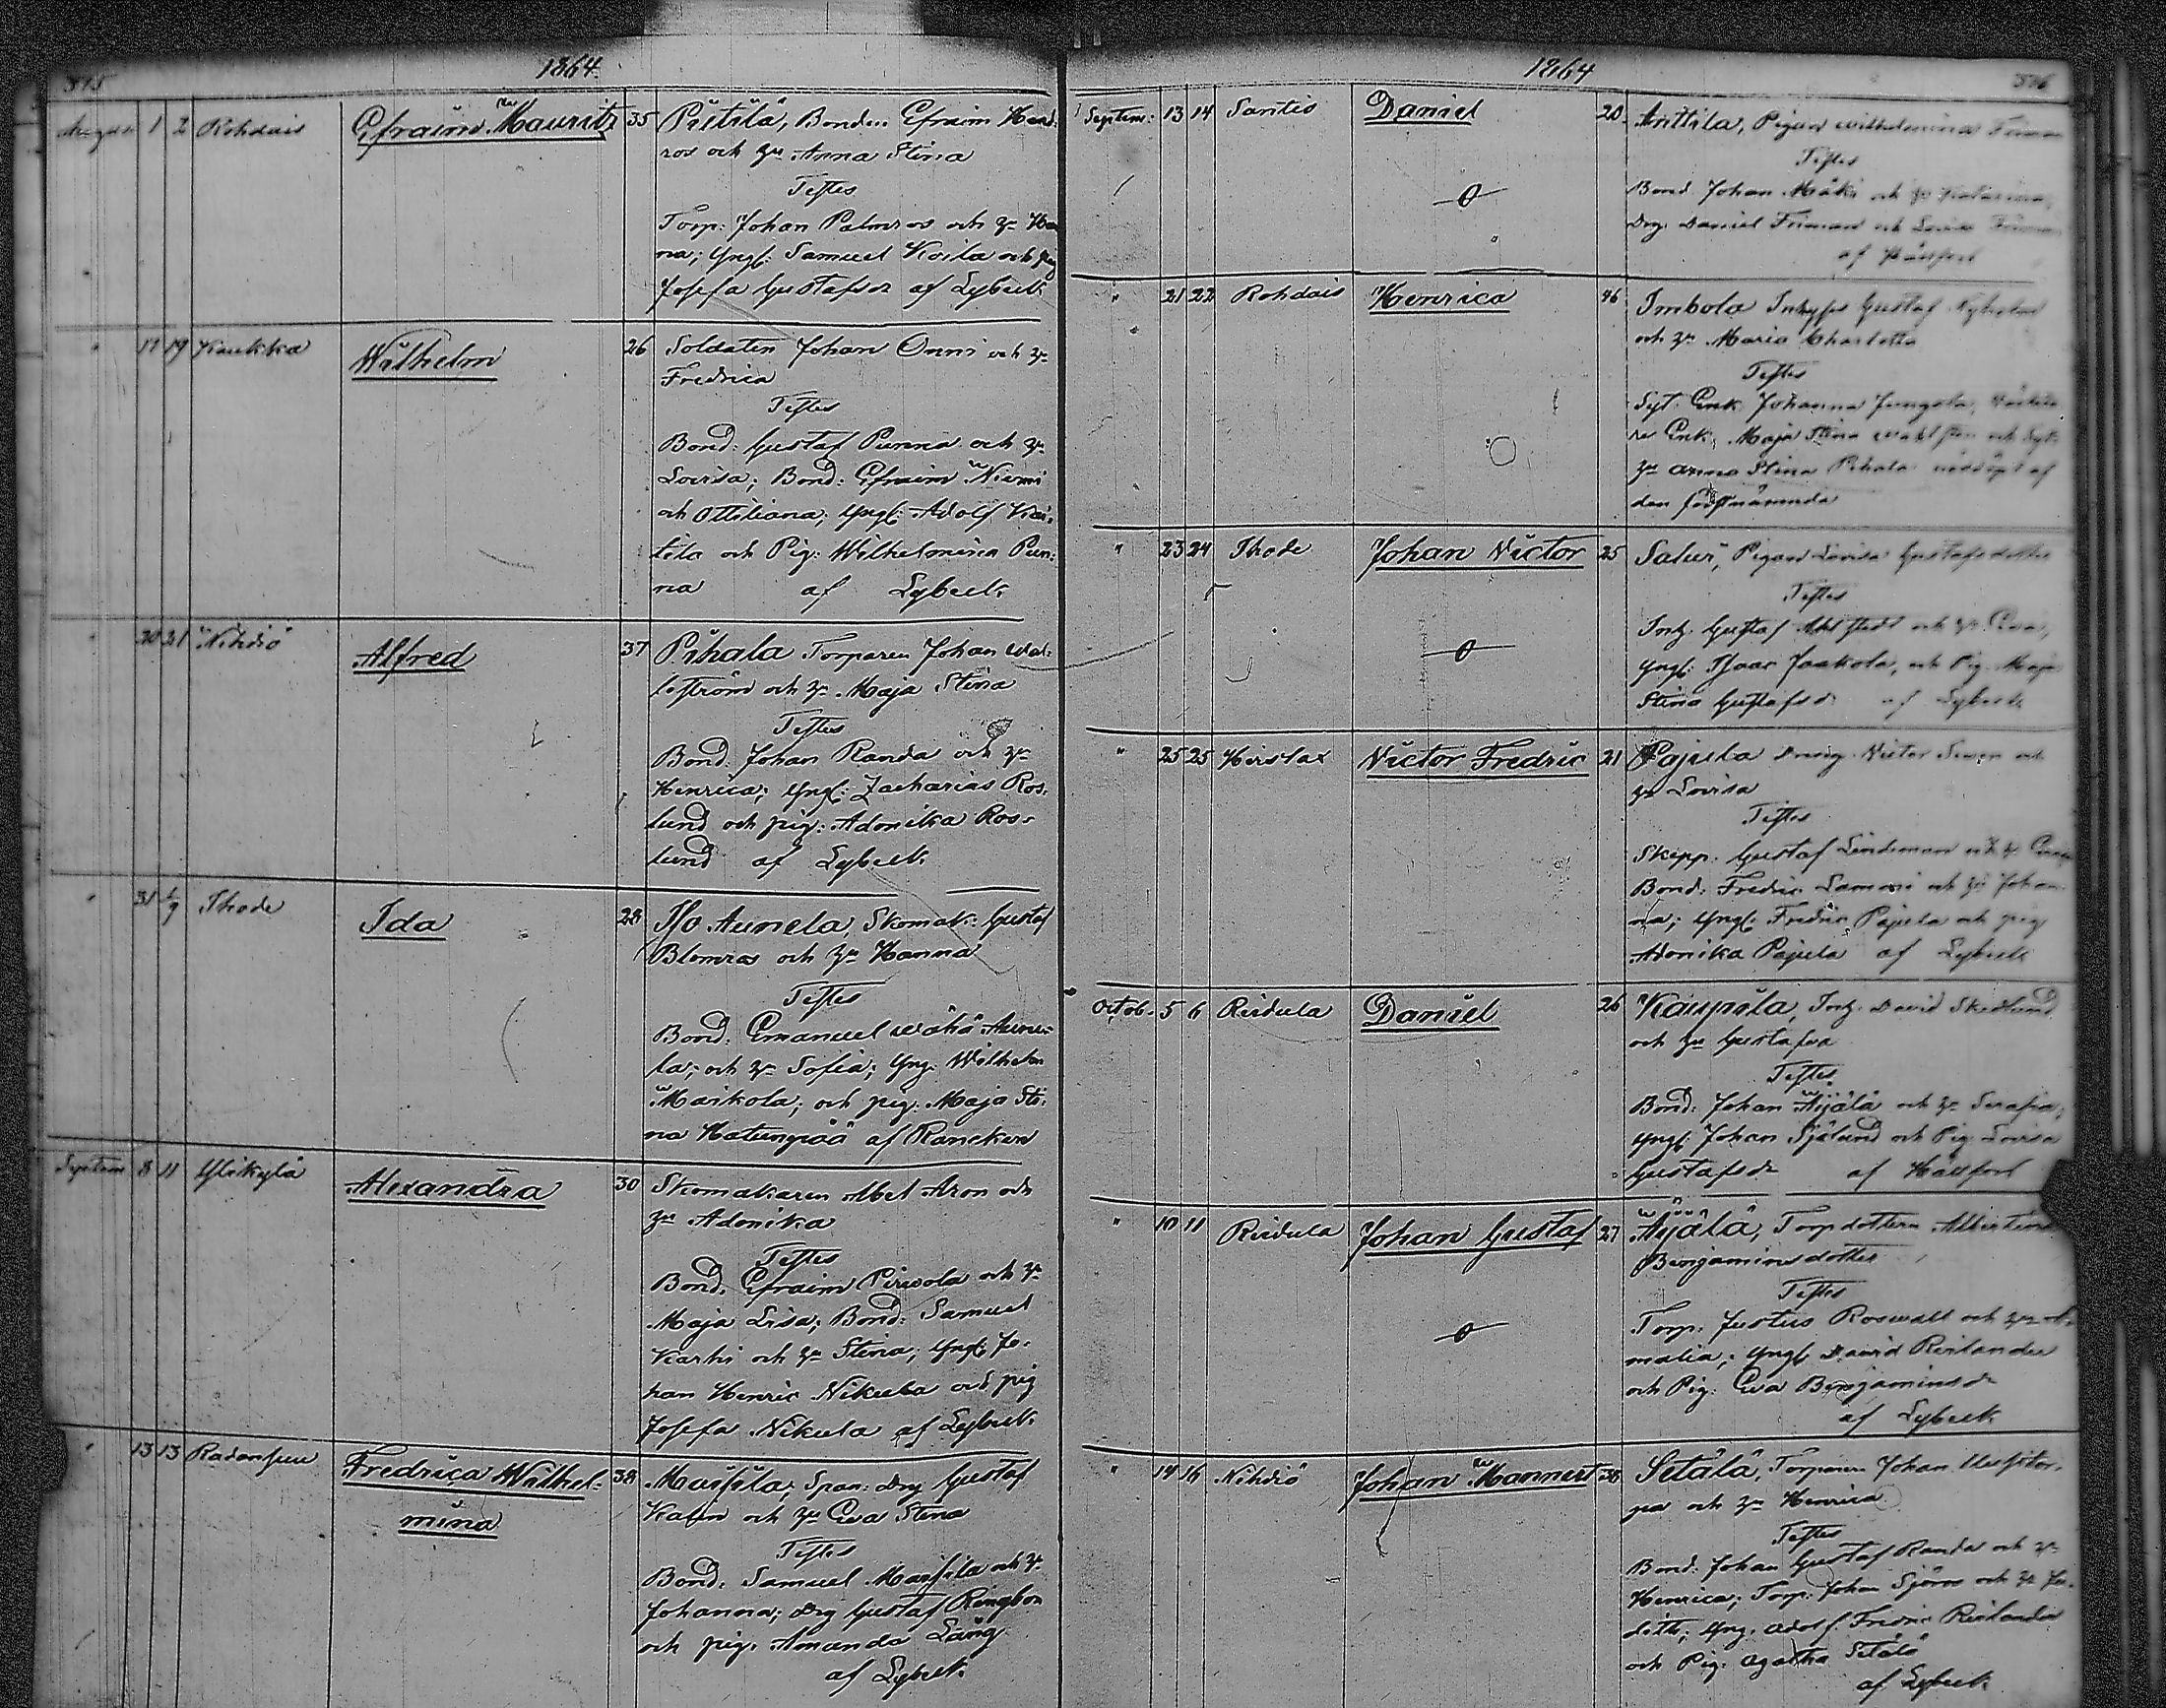 1864
August 1 2 Rohdais Efraim Mauritz 35 Pietilä, Bonden Efraim Hend-
ros och Hu Anna Stina
Testes
Torp: Johan Palmros och Hu Han
na; Yngl: Samuel Koila och pig
Josefa Gustafsdr af Lybeck
" 17 19 Kaukka Wilhelm 26 Soldaten Johan Onni och Hu
Fredrica
Testes
Bond: Gustaf Punna och Hu
Lovisa; Bond: Efraim Niemi
och Ottiliana; Yngl: Adolf Kai-
tila och Pig: Wilhelmina Pun-
na af Lybeck
" 20 21 Nihdiö Alfred 37 Pihala Torparen Johan Wal-
lström och Hu Maja Stina
Testes
Bond. Johan Randa och Hu
Henrica; Yngl: Zacharias Ros-
lund och pig: Adonika Ros-
lund af Lybeck
" 31 1/9 Thode Ida 28 Iso Aunela, Skomak: Gustaf
Blomros och Hu Hanna
Testes
Bond: Emanuel Wähä Aune-
la; och Hu Sofia; Yng: Wilhelm
Maikola; och pig: Maja Sti-
na Hatunpää af Rancken
Septem 8 11 Ylikylä Alexandra 30 Skomakaren Abel Aron och
Hu Adonika
Testes
Bond. Efraim Pirwola och Hu
Maja Lisa; Bond: Samuel
Karhi och Hu Stina; Yngl: Jo-
han Henric Nikula och pig
Josefa Nikula af Lybeck
" 13 13 Radansuu Fredrica Wilhel-
mina 38 Maisila, Span: Drg Gustaf
och Hu Eva Stina
Testes
Bond: Samuel Maisila och Hu
Johanna; Drg Gustaf Ringbom
och pig: Amanda Lång
af Lybeck
1864
Septem: 13 14 Santio Daniel 20 Anttila, Pigan Wilhelmina Friman
Testes
Bond Johan Mäki och Hu Katarina,
Drg. Daniel Friman och Lovisa Friman
af Hällfors
" 21 22 Rohdais Henrica 46 Imbola Inhyses Gustaf Nyholm
och Hu Maria Charlotta
Testes
Enk. Johanna Jungola,
Enk. Maja Stina och
Hu Anna Stina Pihala nöddöpt af
den förstnämnda
" 23 24 Thode Johan Victor 25 Pigan Lovisa Gustafsdotter
Testes
Inh. Gustaf Ahlstedt och Hu Eva,
Yngl: Isaac Jaakola, och Pig. Maja
Stina Gustafsd. af Lybeck
" 25 25 Hirslax Victor Fredric 21 Pajula Dräng Victor och
Hu Lovisa
Testes
Skepp: Gustaf Lindeman och Hu
Bond: Fredric Lammi och Hu Johan-
na; Yngl: Fredric Pajula och pig
Adonika Pajula af Lybeck
Octob. 5 6 Rirdula Daniel 26 Kaupila, Inh. David Skedlund
och Hu Gustafva
Testes
Bond: Johan Äijälä och Hu Serafia;
Yngl: Johan Sjölund och Pig Lovisa
Gustafsdr af Hällfors
" 10 11 Rirdula Johan Gustaf 27 Äijälä, Torpdottern Albertina
Benjaminsdotter
Testes
Torp. Justus Roswall och Hu A-
malia; Yngl. David Reilander
och Pig: Eva Benjaminsdr
af Lybeck
" 14 16 Nihdiö Johan Mannert 38 Setälä, Torparen Johan
och Hu Henrica
Testes
Bond. Johan Gustaf Randa och Hu
Henrica; Torp. Johan Sjöros och Hu Ju-
dith; Yng. Adolf Fredric Reilander
och Pig. Agatha Setälä
af Lybeck